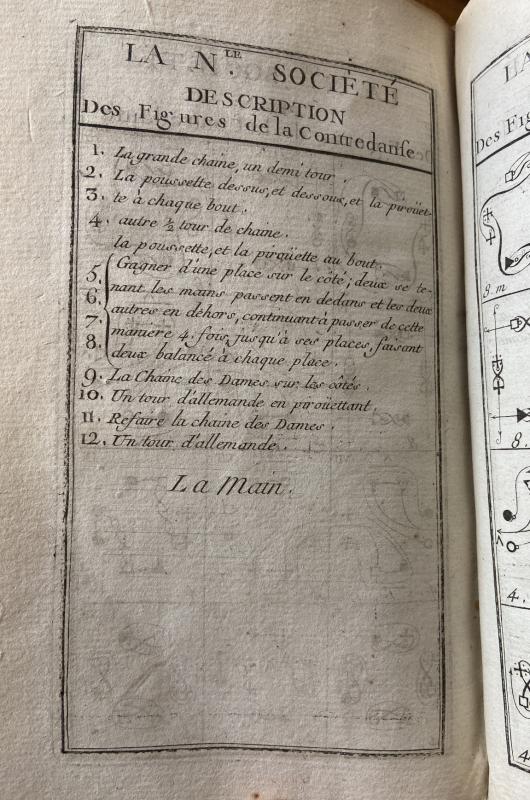 LA N.LE SOCIÈTÉ
DESCRIPTION
Des Figures de la Contredanse
1. La grande chaine, un demi tour.
2. La poussette dessus, et dessous, et la piroüet-
3. te à chaque bout.
4. autre ½ tour de chaine.
la poussette, et la pirqüette au bout.
5. Gagner d'une place sur le côté; deux se te-
6. nant les mains passent en dedans et les deux
7. autres en déhors, continuant à passer de cette
8. maniére 4. fois, jusqu'à ses places, faisant
deux balancé à chaque place.
9. La Chaine des Dames sur les côtés.
10. Un tour d'allemande en piroüettant.
11. Refaire la chaine des Dames.
12. Un tour d'allemande.
La Main.
LA
Des Fig
8. m
8.
4.
4